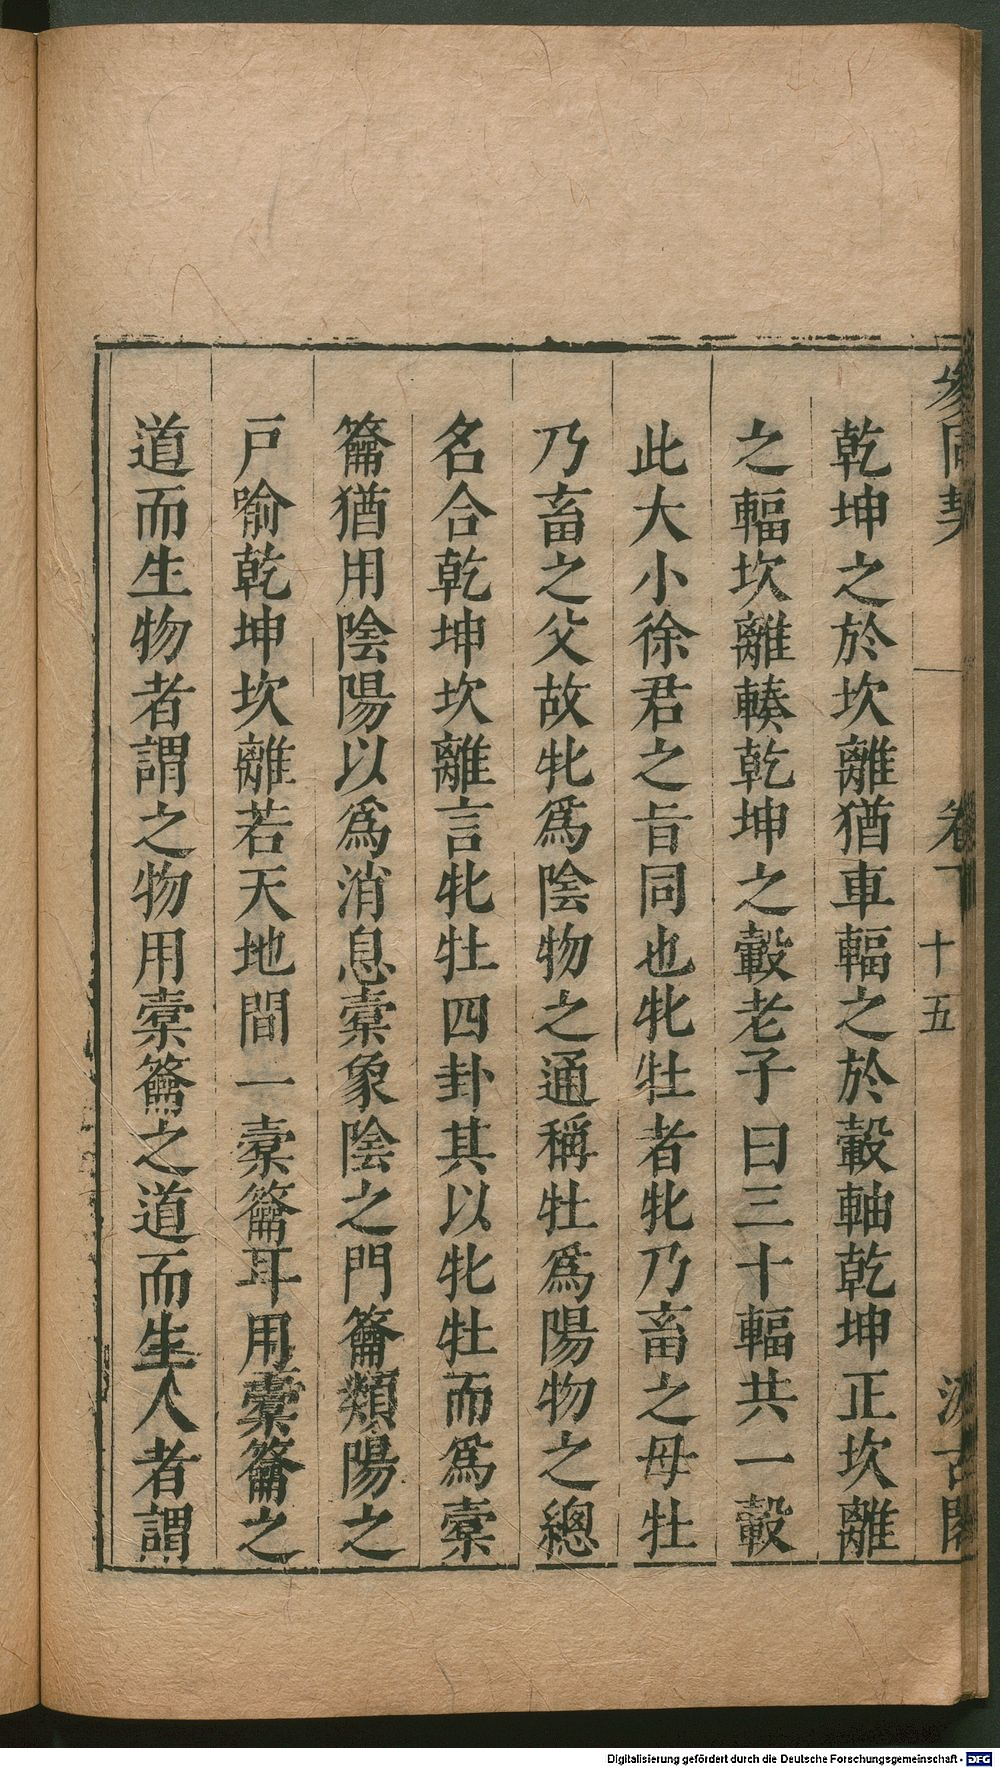 參同契 卷下 十五 汲古閣
乾坤之於坎離猶車輻之於轂軸乾坤正坎離
之輻坎離輳乾坤之轂老子曰三十輻共一轂
此大小徐君之旨同也牝牡者牝乃畜之母牡
乃畜之父故牝爲陰物之通稱牡爲陽物之總
名合乾坤坎離言牝牡四卦其以牝牡而爲橐
籥猶用陰陽以爲消息橐象陰之門籥類陽之
戸喻乾坤坎離若天地間一橐籥耳用橐籥之
道而生物者謂之物用橐籥之道而生人者謂
Digitalisierung gefördert durch die Deutsche Forschungsgemeinschaft - DFG